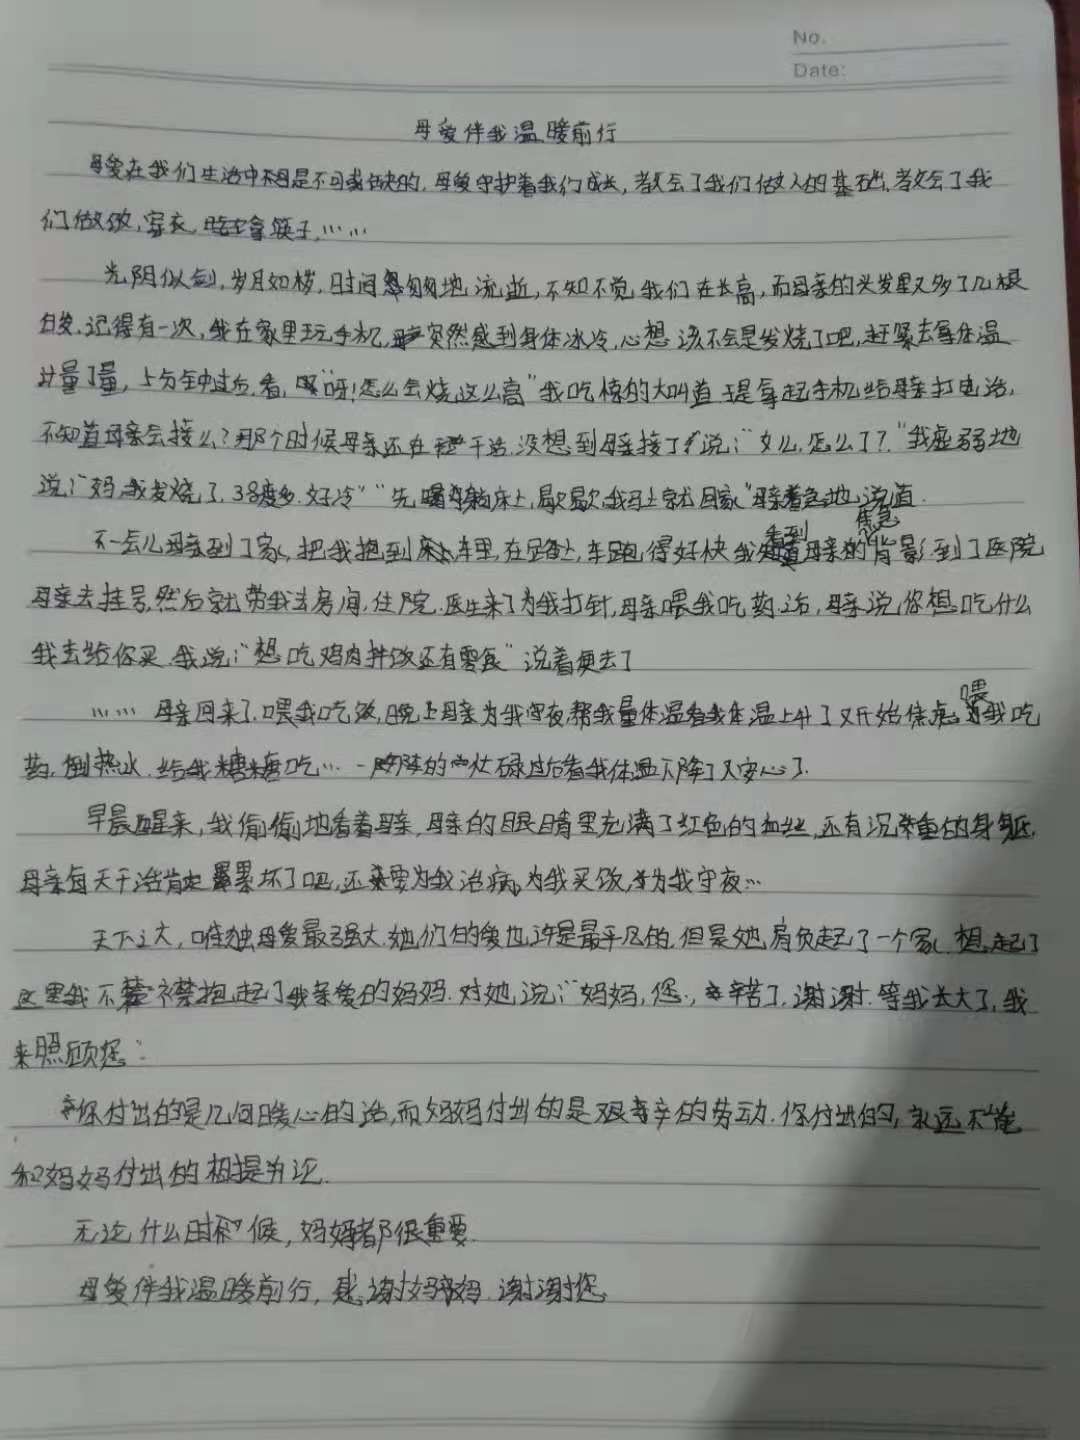 No.
Date:
母爱伴我温暖前行
母爱在我们生活中不可或缺的，母爱守护着我们成长，教会了我们做人的基础，教会了我
们做饭，穿衣，吃拿筷子，……
光阴似剑，岁月如梭，时间匆匆地流逝，不知不觉我们在长高，而母亲的头发里又多了几根
白发.记得有一次，我在家里玩手机，突然感到身体冰冷，心想该不会是发烧了吧，赶紧去拿体温
计量了量，上分钟过后，看，“呀！怎么会烧这么高”我吃惊的大叫道于是拿起手机给母亲打电话，
不知道母亲会接么？那个时候母亲还在干活.没想到母亲接了说；“女儿，怎么了？”我虚弱地
说；“妈，我发烧了，38度多.好冷”“先躺床上，歇歇，我马上就回家”母亲着急地说道.
看到 焦急
不一会儿母亲到了家，把我抱到车里，在路上，车跑得好快我母亲的背影.到了医院
母亲去挂号，然后就带我去房间，住院.医生来了为我打针，母亲喂我吃药.之后，母亲说你想吃什么
我去给你买.我说；“想吃鸡肉拌饭还有零食”说着便去了
喂
……母亲回来了.喂我吃饭，晚上母亲为我守夜帮我量体温看我体温上升了又开始焦虑，我吃
药，倒热水.给我糖吃…一阵的忙碌过后看我体温下降了又安心了.
早晨醒来，我偷偷地看着母亲，母亲的眼睛里充满了红色的血丝，还有沉重的身躯，
母亲每天干活肯定累坏了吧，还要为我治病，为我买饭，为我守夜…
天下之大，唯独母爱最强大.她们的爱也许是最平凡的.但是她肩负起了一个家.想起了
这里我不禁抱起了我亲爱的妈妈.对她说；“妈妈，您，辛苦了，谢谢.等我长大了，我
来照顾您.”
你付出的是几句暖心的话，而妈妈付出的是艰辛的劳动.你付出的，永远不能
和妈妈付出的相提并论.
无论什么时候，妈妈都很重要.
母爱伴我温暖前行，感谢妈妈.谢谢您